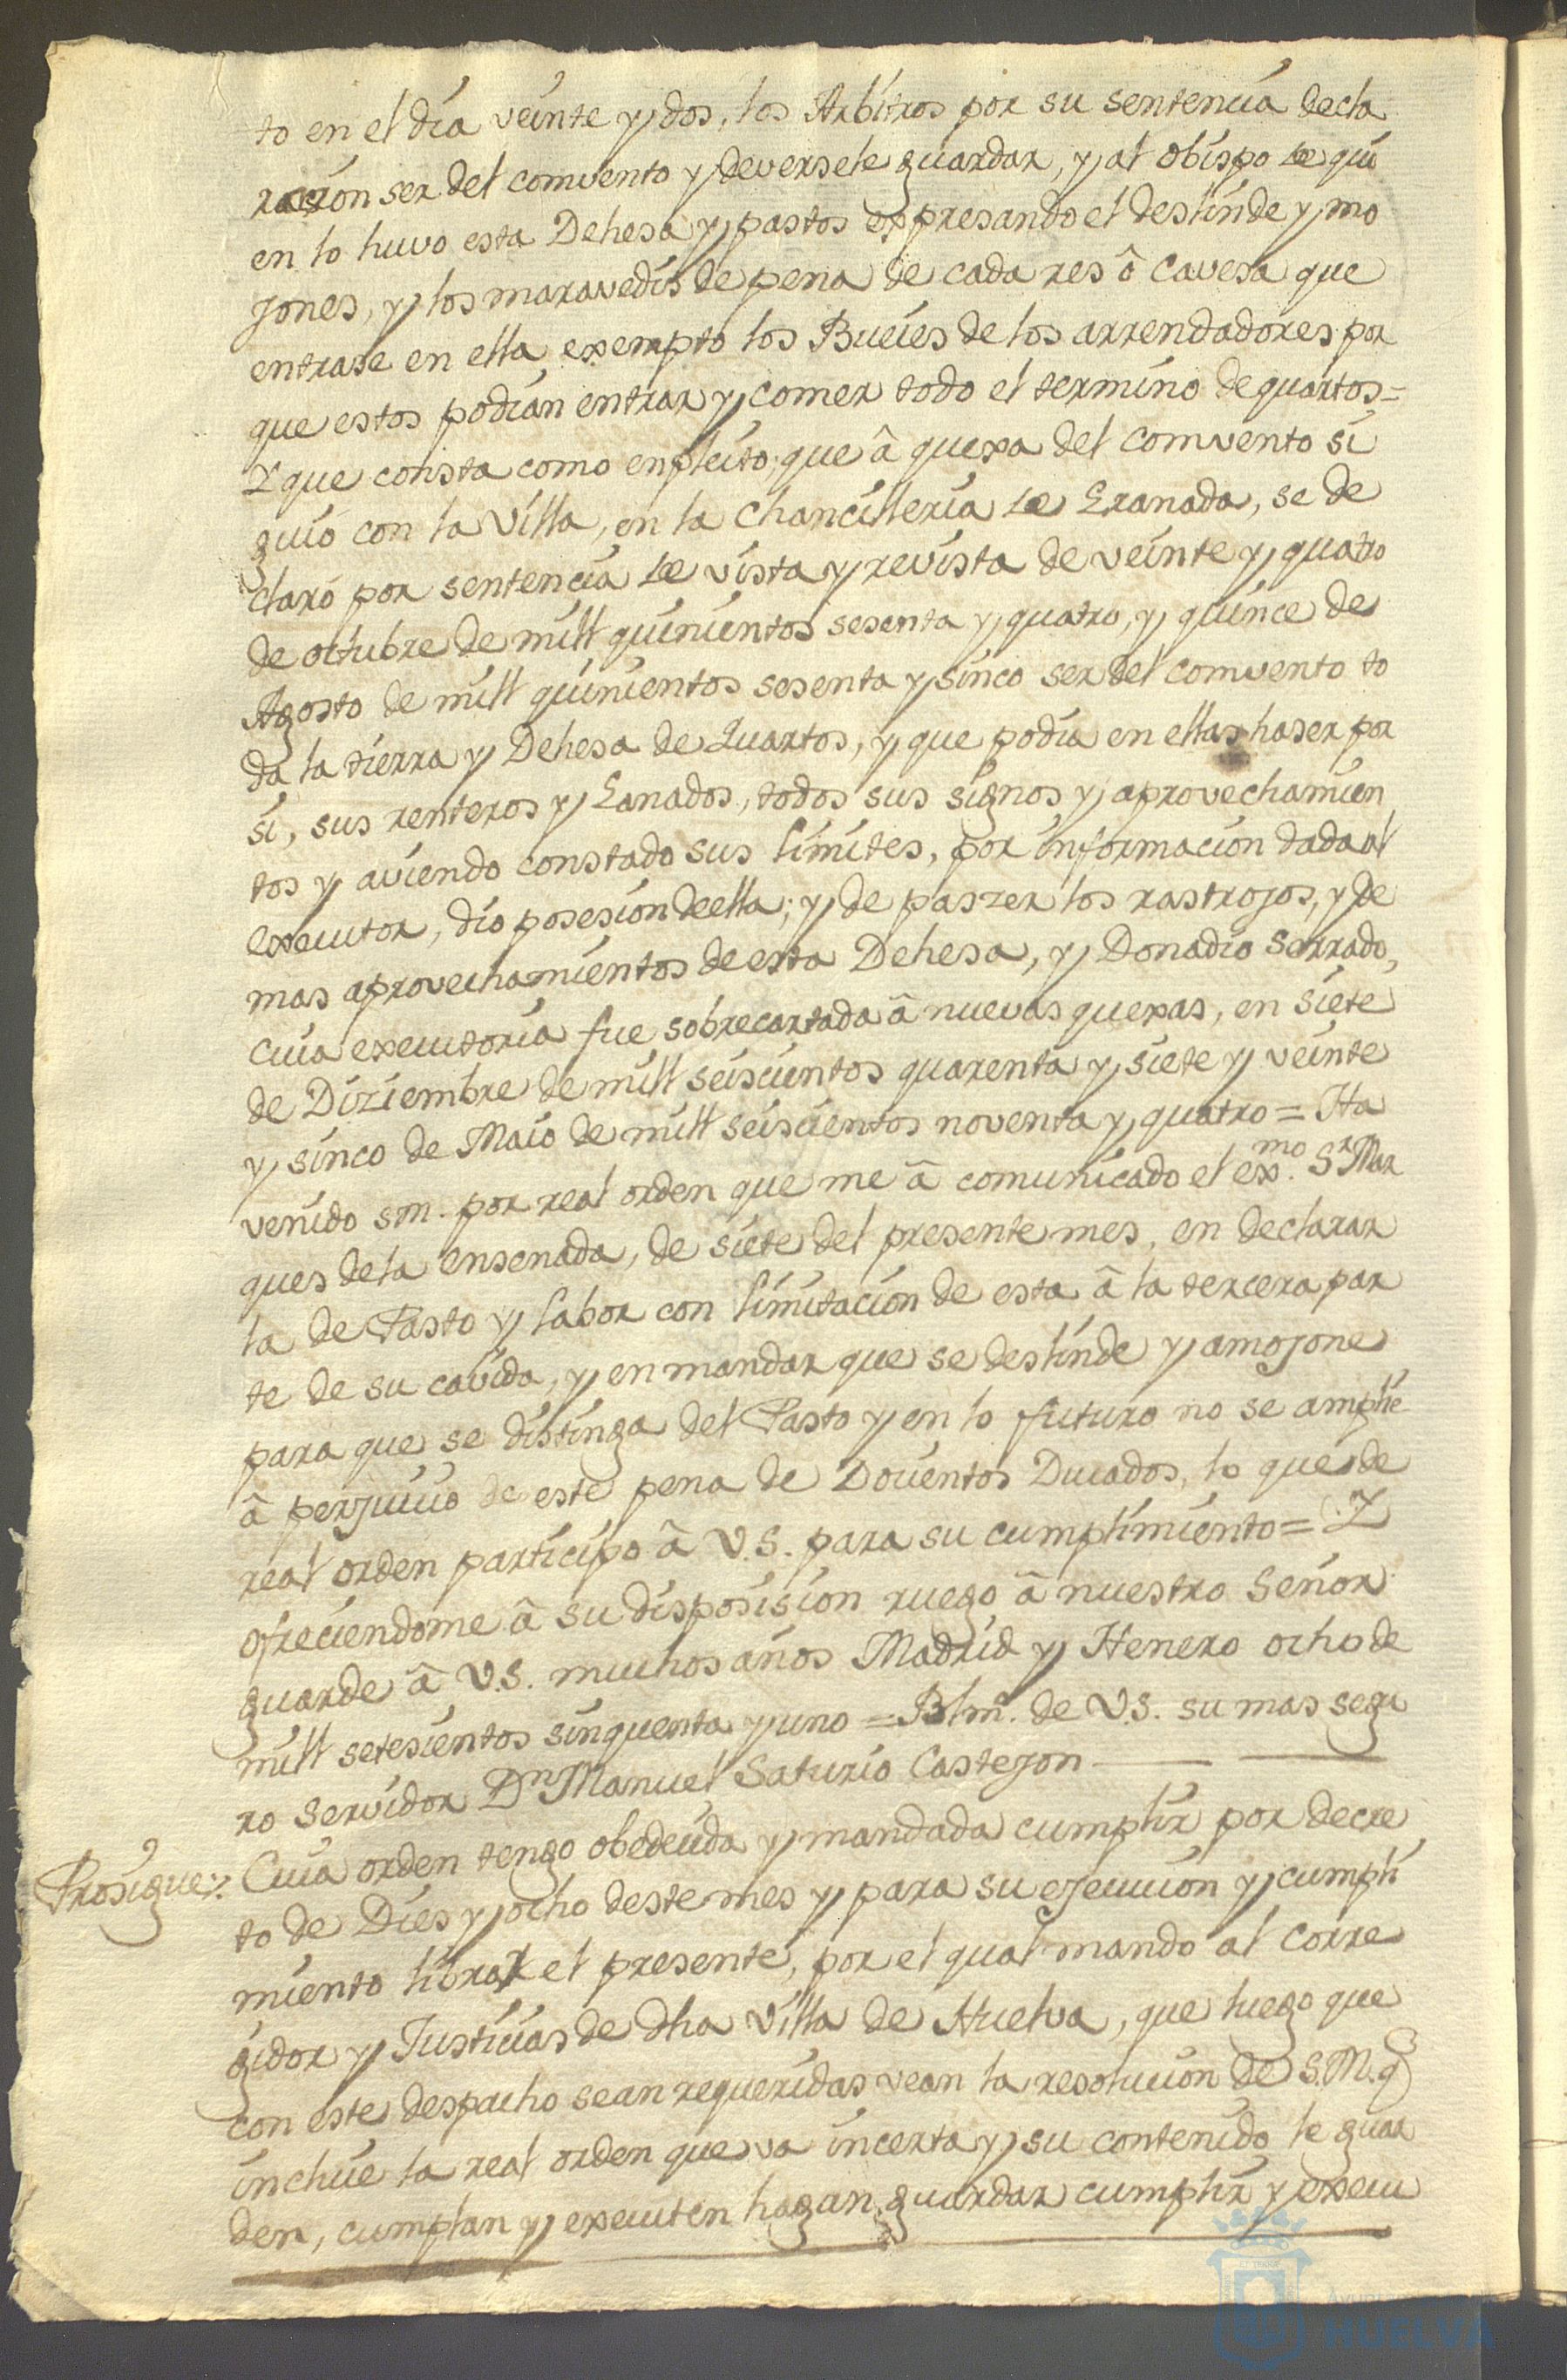 to en el dia veinte y dos, los Arbitros por su sentencia decla
raron ser del comvento y deversele guardar, y al obispo de qui
en lo huvo esta Dehesa y pastos expresando el deslinde y mo
jones, y los maravedis de pena de cada res ô Cavesa que
entrase en ella exempto los Bueies de los arrendadores por
que estos podian entrar y comer todo el termino de quartos=
Y que consta como en pleito, que â quexa del comvento si
guio con la Villa, en la Chancilleria de Granada, se de
claró por sentencia de vista y revista de veinte y quatro
de octubre de mill quinientos sesenta y quatro, y quince de
Agosto de mill quinientos sesenta y sinco ser del comvento to
da la tierra y Dehesa de Quartos, y que podia en ellas haser por
si, sus renteros y Ganados, todos sus signos y aprovechamien
tos y aviendo constado sus limites, por informacion dada al
executor, dio posesion de ella; y de paszer los rastrojos, y de
mas aprovechamientos de esta Dehesa, y Donadio Serrado,
cuia executoria fue sobrecartada â nuevas quexas, en siete
de Diziembre de mill seiscientos quarenta y siete y veinte
y sinco de Maio de mill seiscientos noventa y quatro = Ha
venido s.m. por real orden que me â comunicado el exmo. Sr Mar
ques de la ensenada, de siete del presente mes, en declarar
la de Pasto y labor con limitacion de esta â la tercera par
te de su cavida, y en mandar que se deslinde y amojone
para que se distinga del Pasto y en lo futuro no se amplie
â perjuicio de este pena de Docientos Ducados, lo que de
real orden participo â V.S. para su cumplimiento = Y
ofreciendome â su disposision ruego â nuestro Señor
guarde â V.S. muchos años Madrid y Henero ocho de
mill setesientos sinquenta y uno = Blm. de V.S. su mas segu
ro Servidor Dn Manuel Saturio Castejon
Prosigue: Cuia orden tengo obedecida y mandada cumplir por decre
to de Dies y ocho deste mes y para su ejecucion y cumpli
miento librar el presente, por el qual mando al Corre
gidor y Justicias de dha Villa de Huelva, que luego que
con este despacho sean requeridas vean la resolucion de S.M. q
incluie la real orden que va incerta y su contenido le guar
den, cumplan y executen hagan guardar cumplir y execu
AYUNTAMIENTO DE
HUELVA